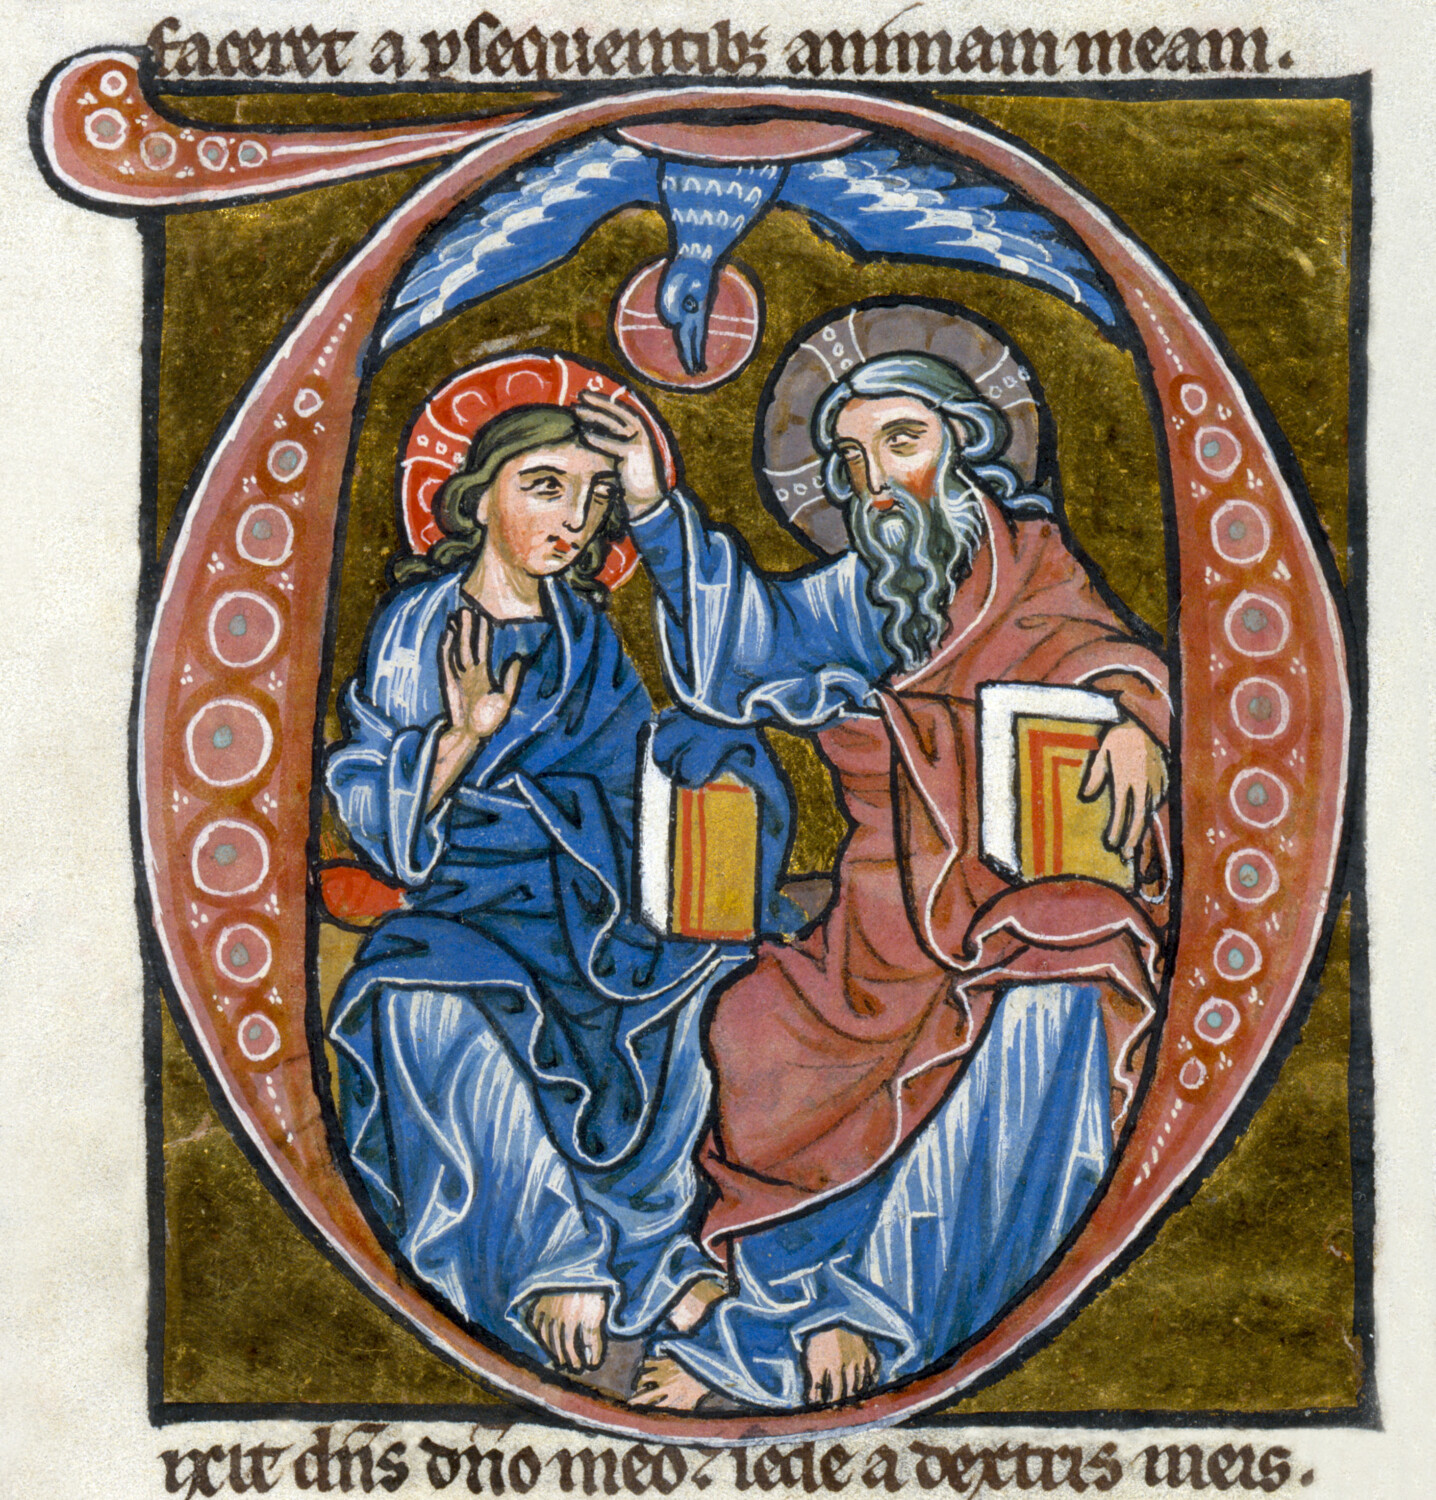 faceret a psequentibꝫ animam meam.
D
ixit dn̄s dn̄o meo: sede a dextris meis.